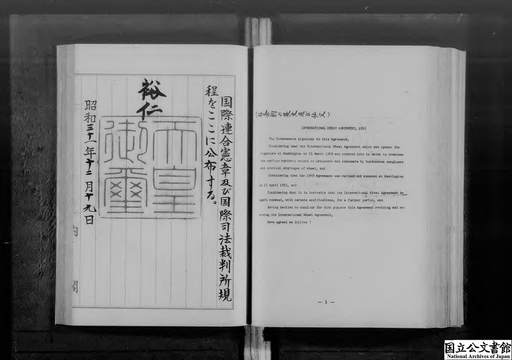 国際連合憲章及び国際司法裁判所規
程をここに公布する。
裕仁
天皇
御璽
昭和三十一年十二月十九日
INTERNATIONAL WHEAT AGREEMENT, 1956
The Governments signatory to this Agreement,
Considering that the International Wheat Agreement which was opened for
signature at Washington on 23 March 1949 was entered into in order to overcome
the serious hardship caused to producers and consumers by burdensome surpluses
and critical shortages of wheat, and
Considering that the 1949 Agreement was revised and renewed at Washington
on 13 April 1953, and
Considering that it is desirable that the International Wheat Agreement be
again renewed, with certain modifications, for a further period, and
Having decided to conclude for that purpose this Agreement revising and re-
newing the International Wheat Agreement,
Have agreed as follows:
— 1 —
国立公文書館
National Archives of Japan